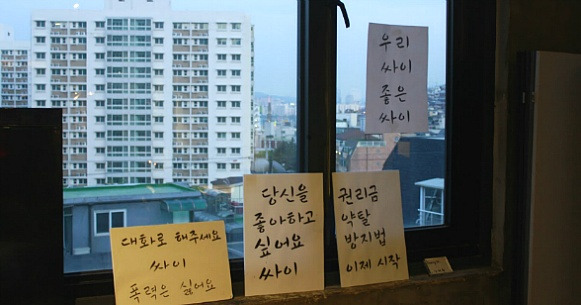 우리
싸이
좋은
싸이
대화로 해주세요
싸이
폭력은 싫어요
당신을
좋아하고
싶어요
싸이
권리금
약탈
방지법
이제 시작